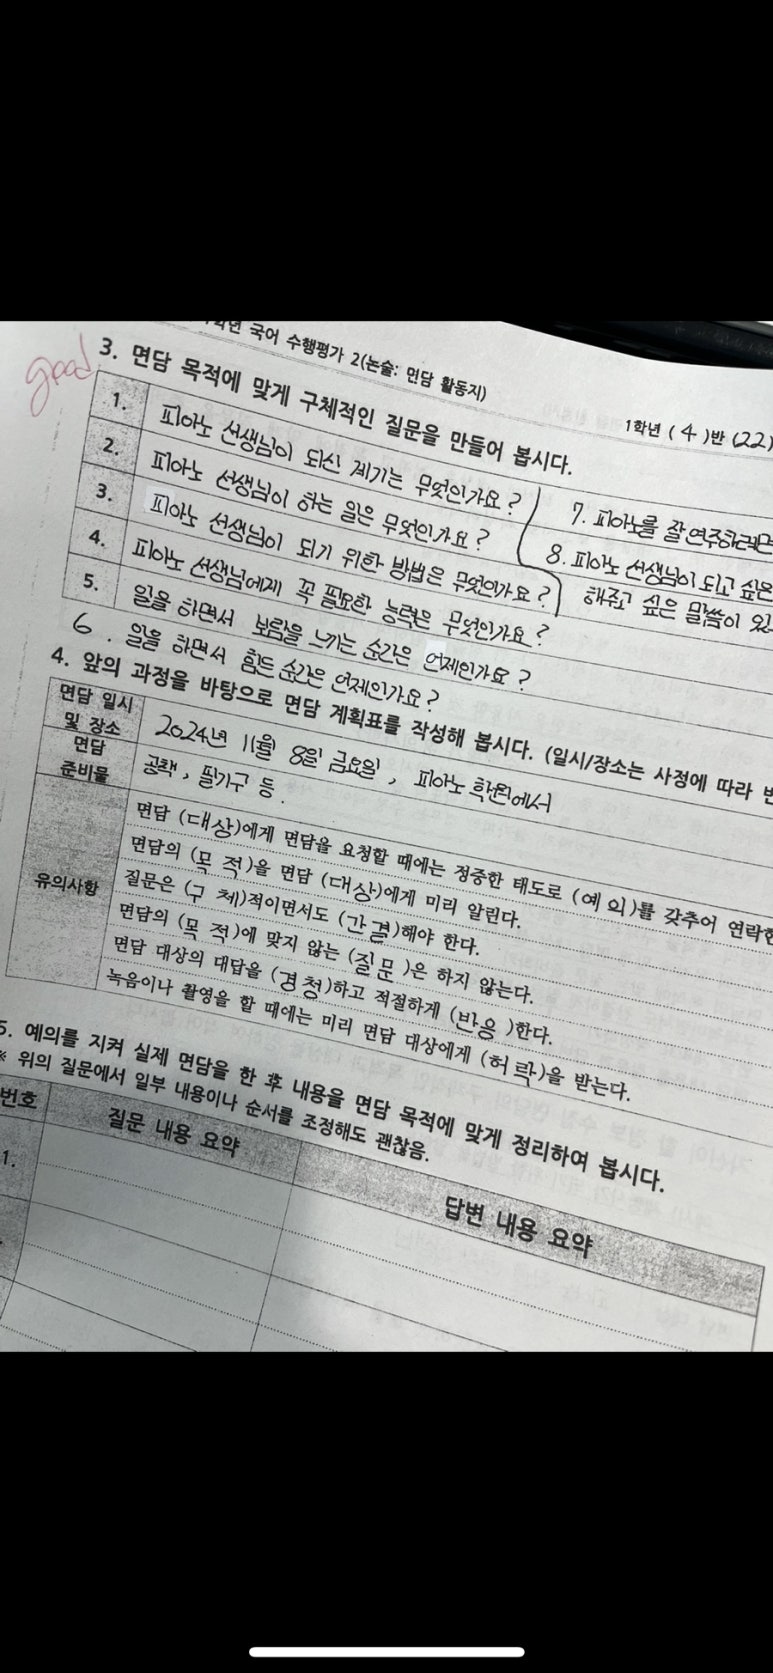 학년 국어 수행평가 2(논술: 면담 활동지)
1학년 ( 4 )반 (22)
good
3. 면담 목적에 맞게 구체적인 질문을 만들어 봅시다.
1. 피아노 선생님이 되신 계기는 무엇인가요?
2. 피아노 선생님이 하는 일은 무엇인가요?
3. 피아노 선생님이 되기 위한 방법은 무엇인가요?
4. 피아노 선생님에게 꼭 필요한 능력은 무엇인가요?
5. 일을 하면서 보람을 느끼는 순간은 언제인가요?
6. 일을 하면서 힘든 순간은 언제인가요?
7. 피아노를 잘 연주하려면
8. 피아노 선생님이 되고 싶은
해주고 싶은 말씀이 있
4. 앞의 과정을 바탕으로 면담 계획표를 작성해 봅시다. (일시/장소는 사정에 따라
면담 일시
및 장소
2024년 11월 8일 금요일, 피아노 학원에서
면담
준비물
공책, 필기구 등.
유의사항
면담 (대상)에게 면담을 요청할 때에는 정중한 태도로 (예의)를 갖추어 연락한
면담의 (목적)을 면담 (대상)에게 미리 알린다.
질문은 (구체)적이면서도 (간결)해야 한다.
면담의 (목적)에 맞지 않는 (질문)은 하지 않는다.
면담 대상의 대답을 (경청)하고 적절하게 (반응)한다.
녹음이나 촬영을 할 때에는 미리 면담 대상에게 (허락)을 받는다.
5. 예의를 지켜 실제 면담을 한 후 내용을 면담 목적에 맞게 정리하여 봅시다.
※ 위의 질문에서 일부 내용이나 순서를 조정해도 괜찮음.
번호
질문 내용 요약
답변 내용 요약
1.